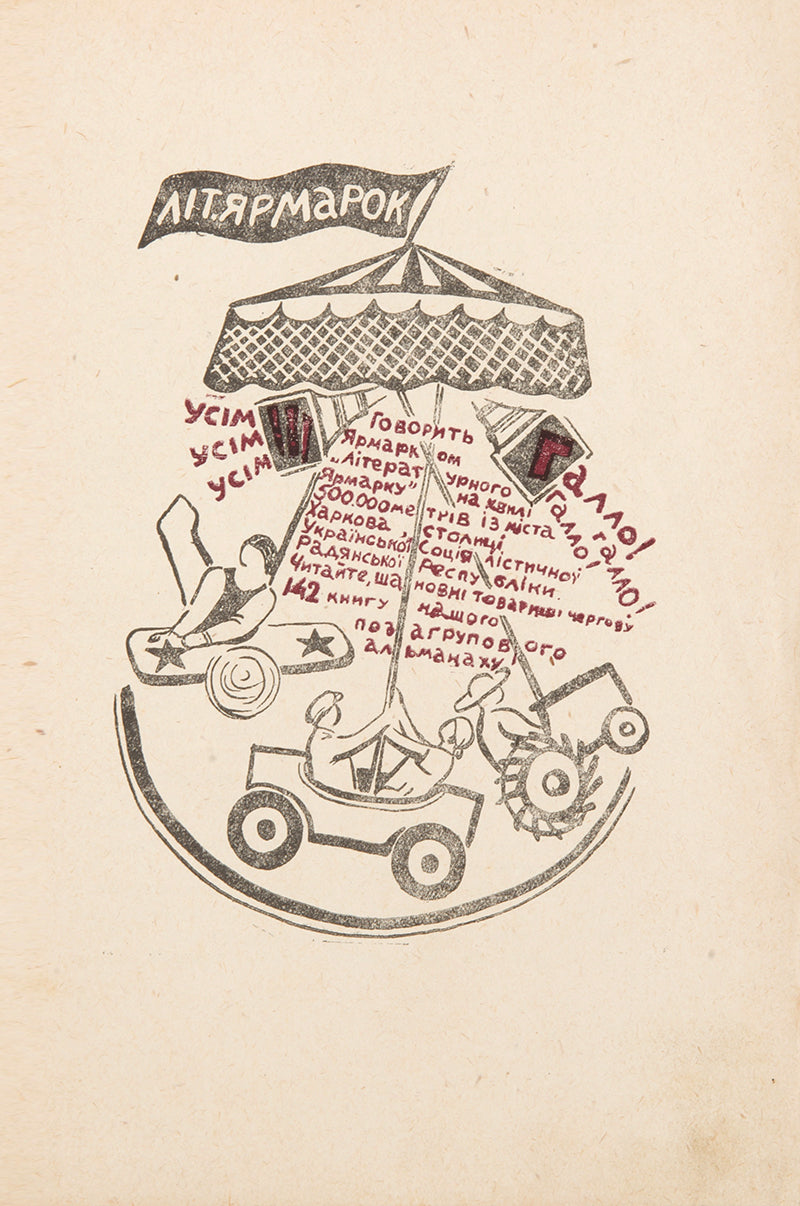 ЛІТ.ЯРМАРОК
УСІМ
УСІМ
УСІМ
!!!
Говорить
Ярмарк ом
„Літерат урного
Ярмарку” на хвилі
500.000 ме трів із міста
Харкова, столиці
Української Соція лістичної
Радянської Респу бліки.
Читайте, ша новні товариші чергову
142 книгу нашого
поз агрупов ого
ал ьманаху!
Галло!
галло!
галло!